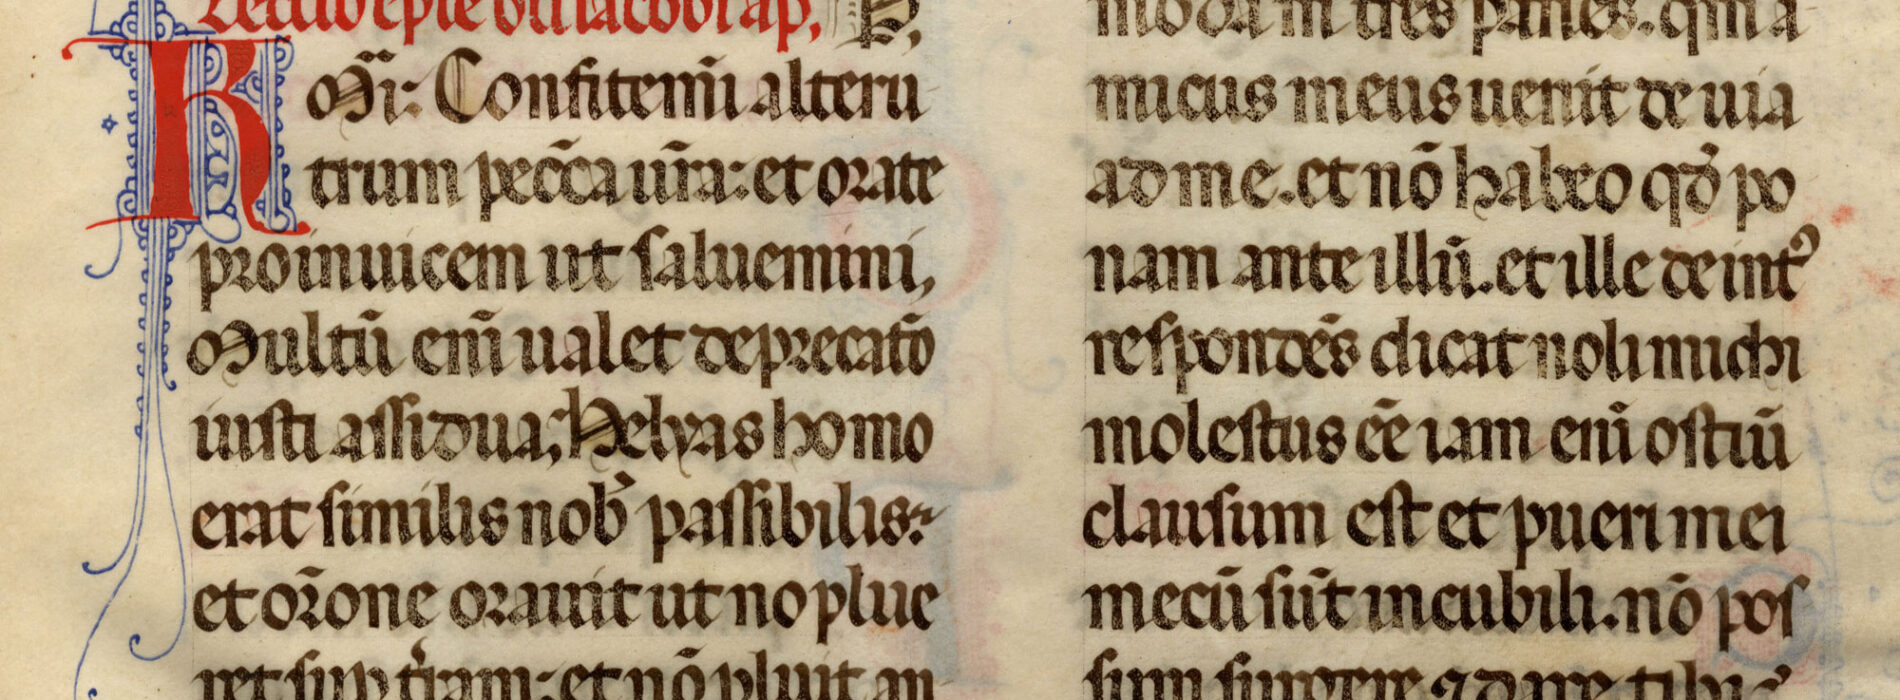 Lectio epl̄e bt̄i iacobi ap̄.
Kr̄mi: Confitemi᷑ alteru
trum pecc̄a ur̄a: et orate
pro inuicem ut saluemini,
Multū eni᷑ ualet deprecat̄o
iusti assidua; Helyas homo
erat similis nob᷑ passibilis:
et or̄one orauit ut no plue
ret sup̄ t᷑ram: et nō pluit an
moda m̄ tres panes. qm̄ a
micus meus uenit de uia
ad me. et nō habeo qd᷑ po
nam ante illū. et ille deintꝰ
respondēs dicat noli michi
molestus eē iam eni᷑ ostiū
clausum est et pueri mei
mecū sūt in cubili. nō pos
sum surgere ⁊ dare tibi